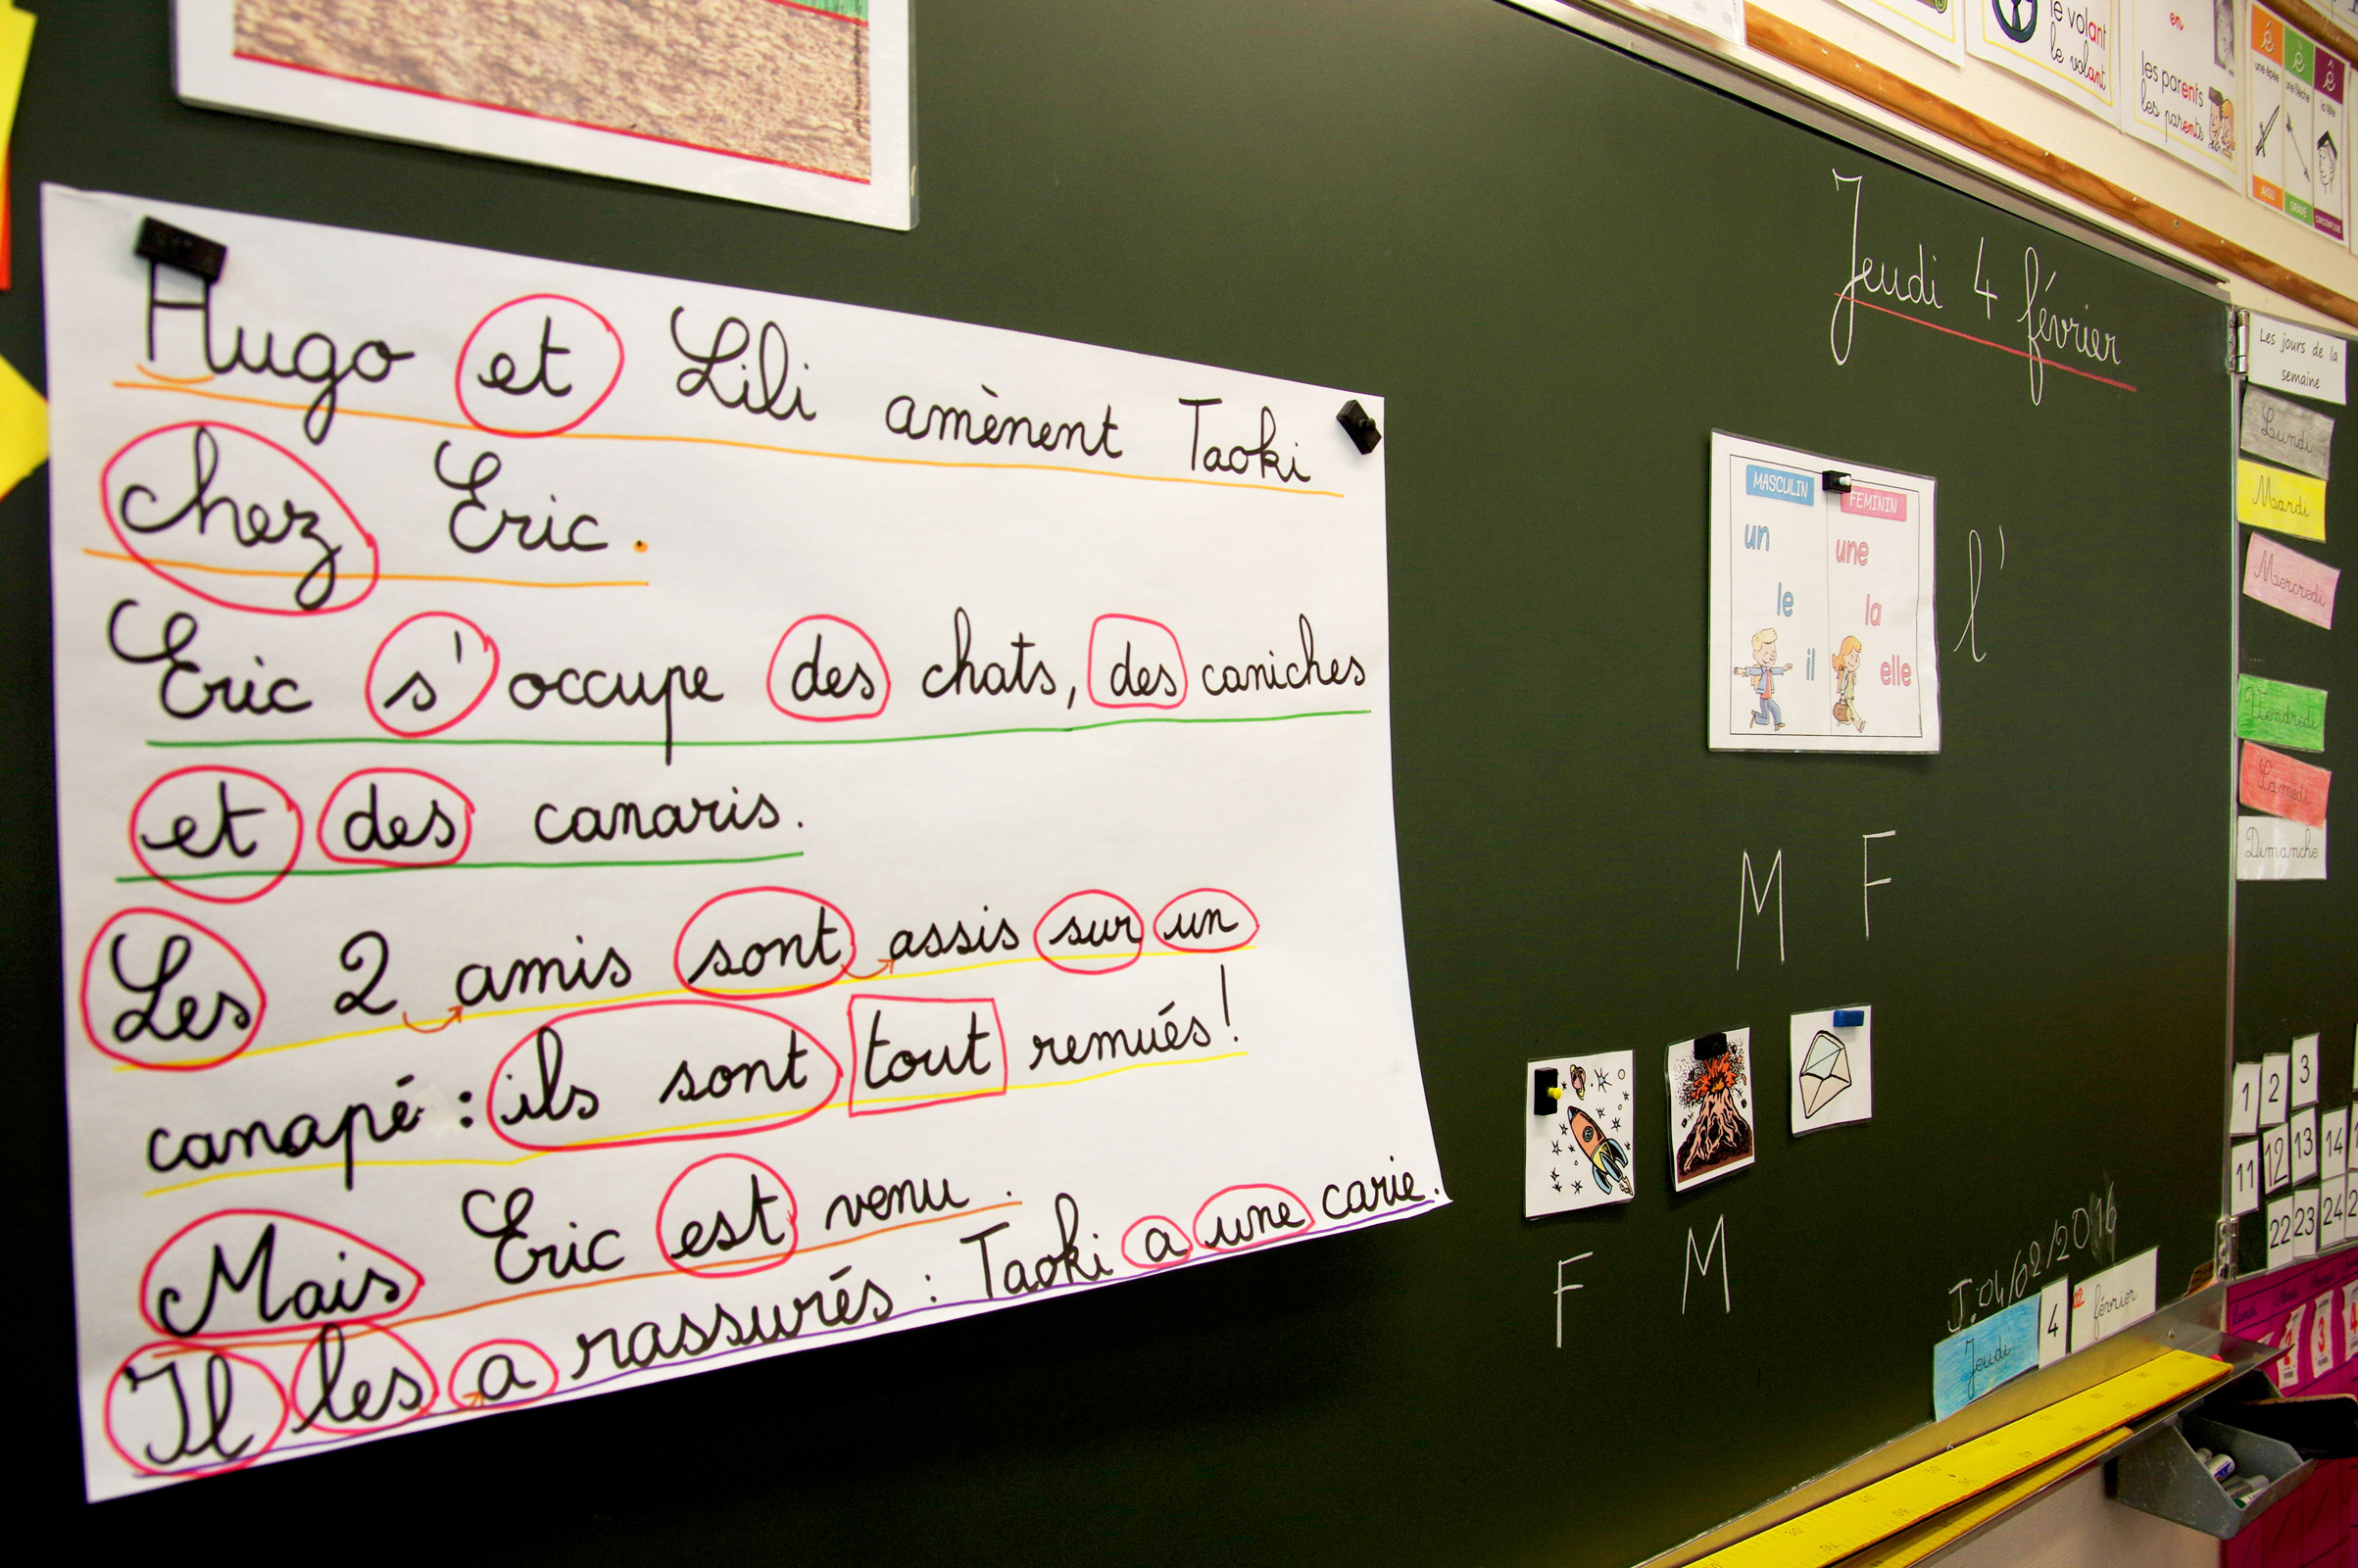 Hugo et Lili amènent Taoki
chez Eric.
Eric s'occupe des chats, des caniches
et des canaris.
Les 2 amis sont assis sur un
canapé : ils sont tout remués !
Mais Eric est venu.
Il les a rassurés : Taoki a une carie.
Jeudi 4 février
MASCULIN
FEMININ
un
une
le
la
il
elle
l'
M F
F M
J: 04/02/2016
Jeudi 4 02 février
le volant
le volant
en
les parents
les parents
une épée
une flèche
la tête
AIGU
GRAVE
CIRCONFLEXE
Les jours de la
semaine
Lundi
Mardi
Mercredi
Vendredi
Samedi
Dimanche
1 2 3
11 12 13 14
22 23 24